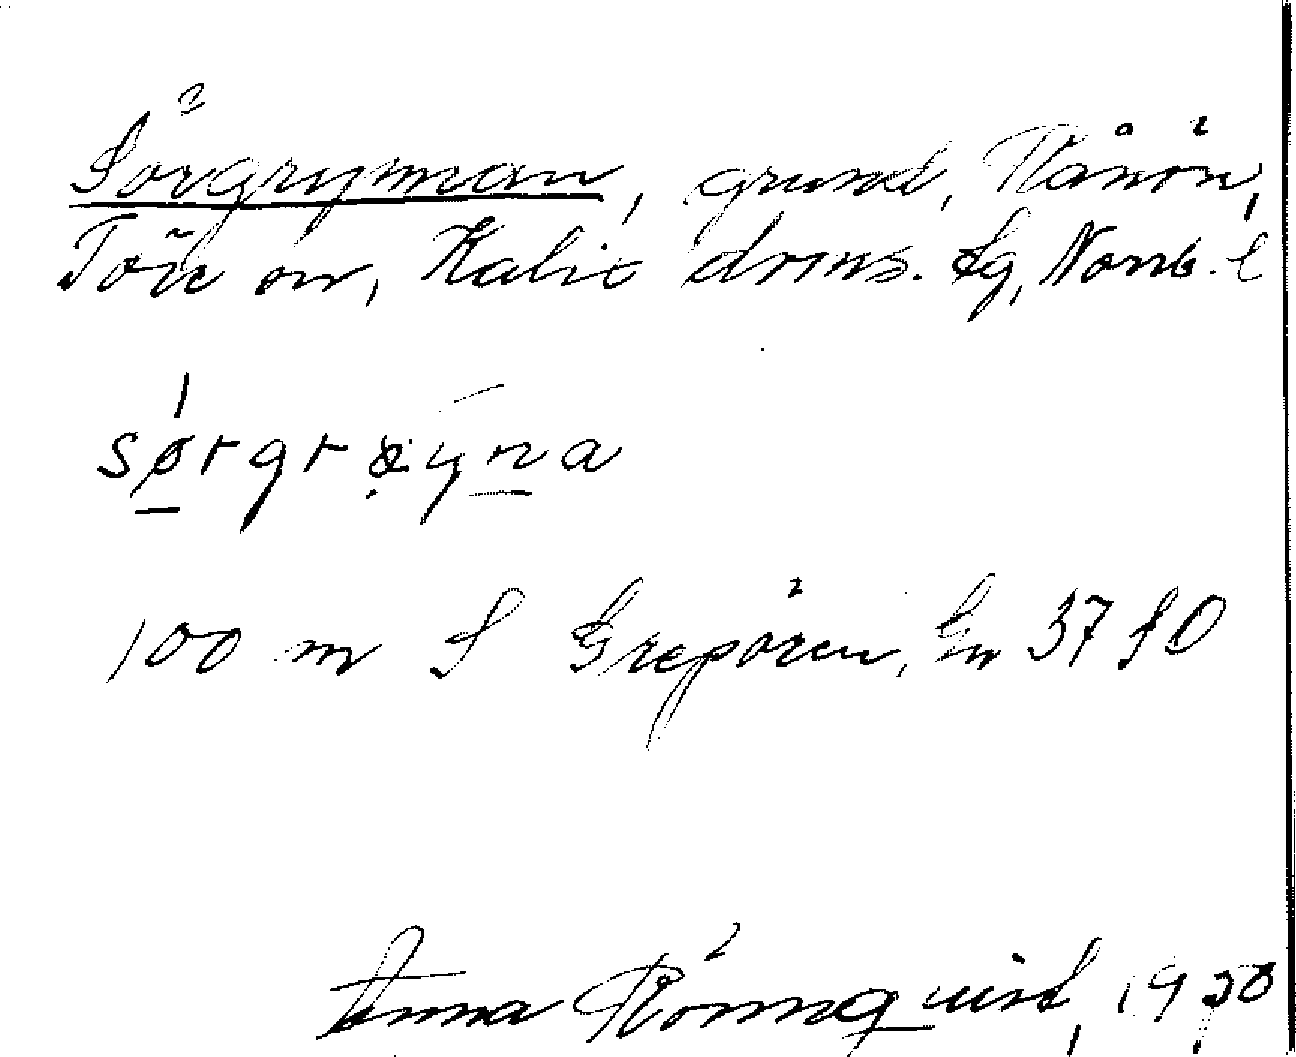 Sörgrynnan, grund, Rånön,
Töre sn, Kalix doms. lg, Norrb. l
sørgrøyna
100 m S Grepören, Gen 37 SO
Anna Rönnquist, 1930